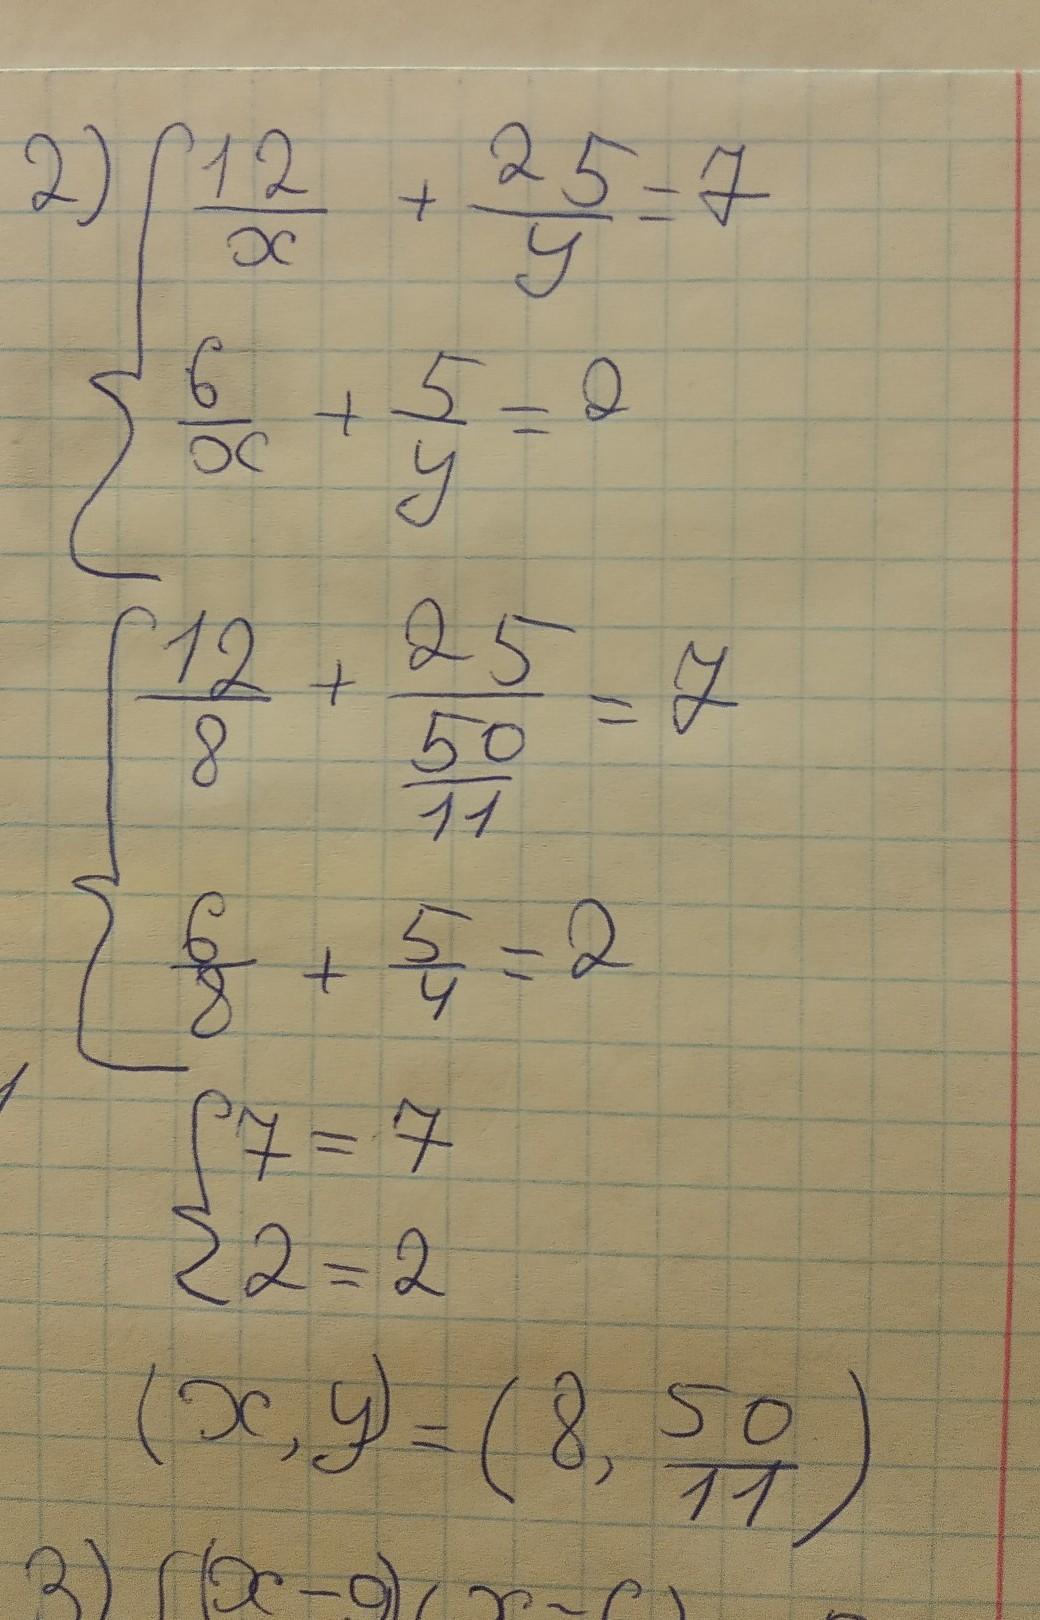 2) { 12/x + 25/y = 7
6/x + 5/y = 2
{ 12/8 + 25/(50/11) = 7
6/8 + 5/4 = 2
{ 7 = 7
2 = 2
(x, y) = (8, 50/11)
3) { (x - 9)(x -